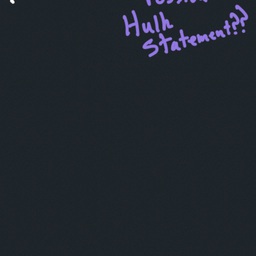 Hulk
Statement??